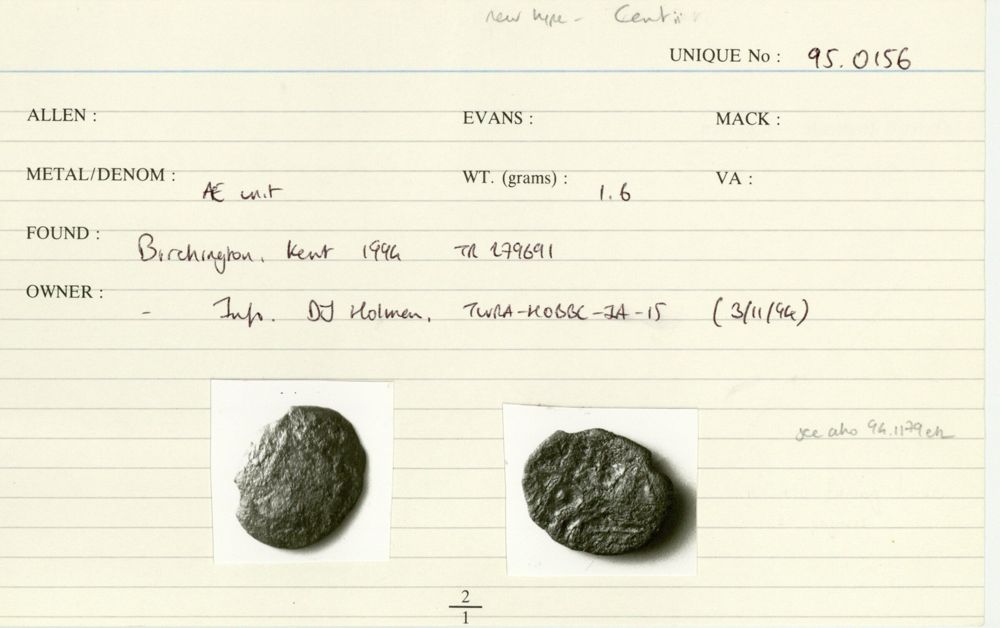 new type - Cantii
UNIQUE No : 95.0156
ALLEN : EVANS : MACK :
METAL/DENOM : Æ unit WT. (grams) : 1.6 VA :
FOUND : Birchington, Kent 1994 TR 279691
OWNER : - Info. DJ Holman, (3/11/94)
see also 94.1179 etc
2
1